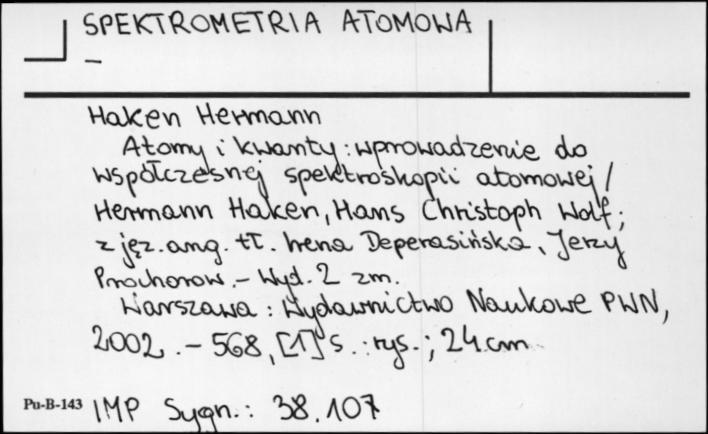 SPEKTROMETRIA ATOMOWA
—
Haken Hermann
Atomy i kwanty : wprowadzenie do
współczesnej spektroskopii atomowej /
Hermann Haken, Hans Christoph Wolf ;
z jęz. ang. tł. Irena Deperasińska, Jerzy
Prochorow. - Wyd. 2 zm.
Warszawa : Wydawnictwo Naukowe PWN,
2002. - 568, [1] s. : rys. ; 24 cm
Pu-B-143 IMP Sygn. : 38.107